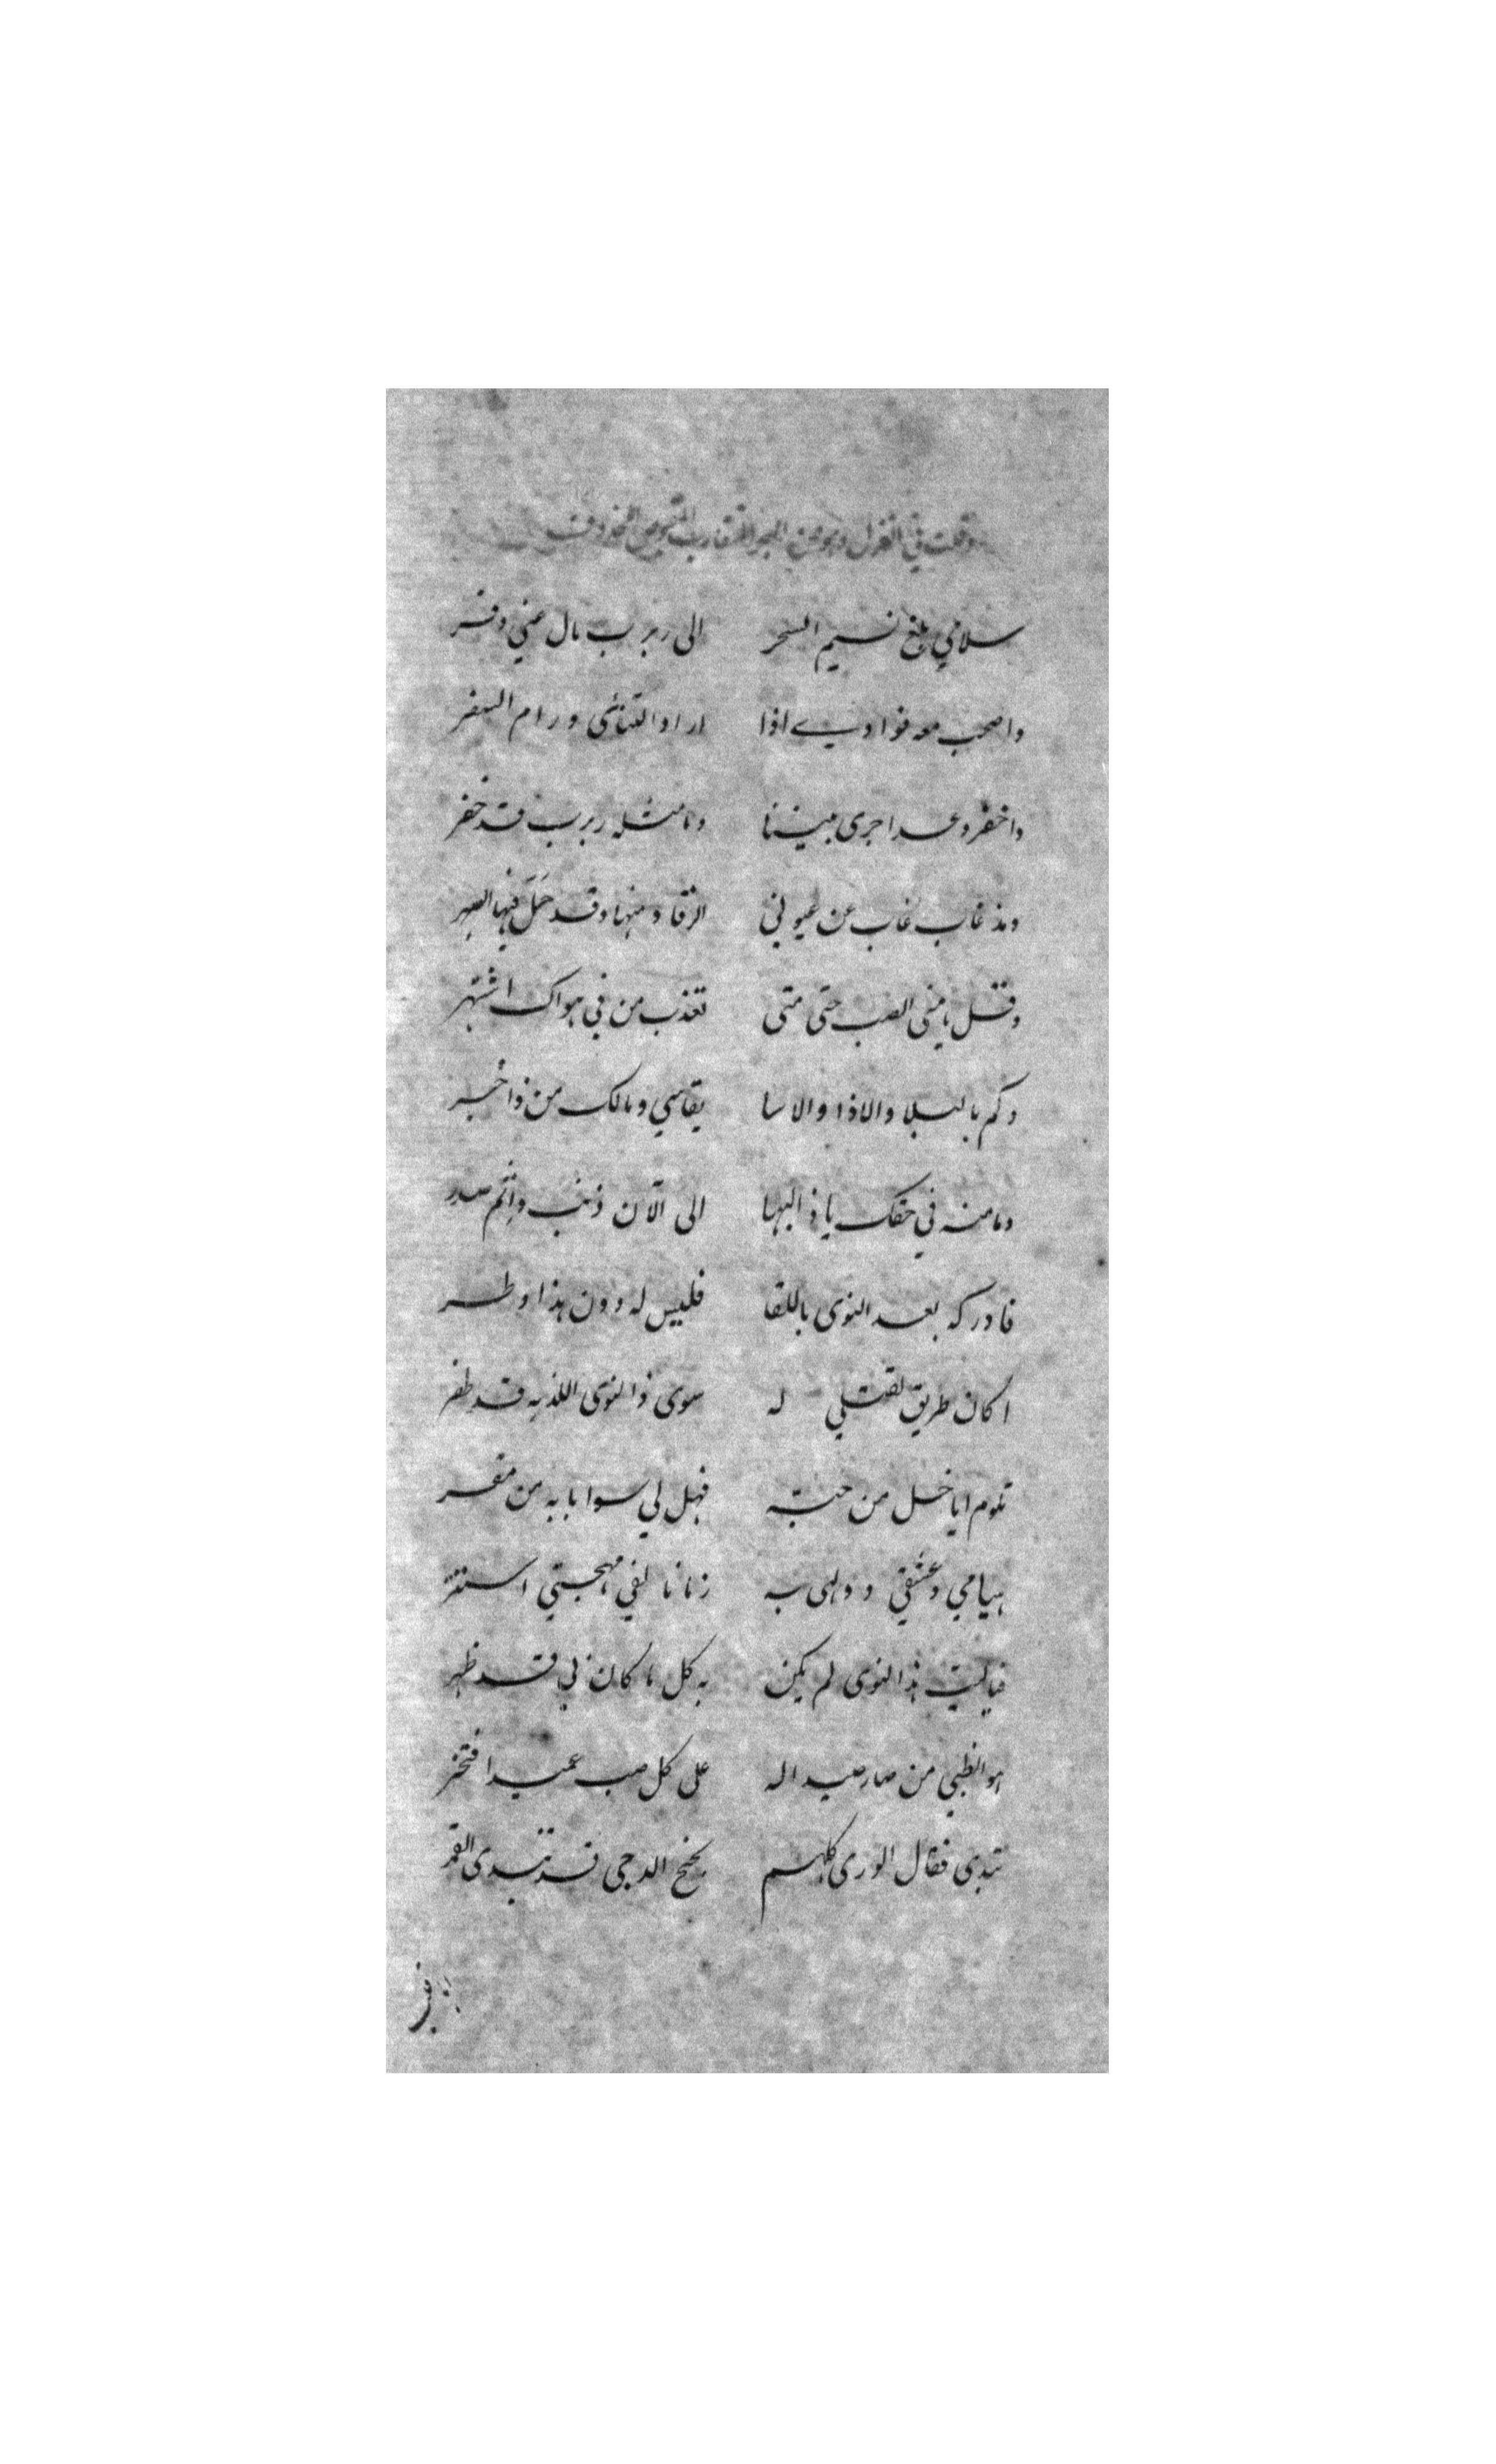 وقلت في الغزل وهو من البحر المتقارب المقبوض المحذوف
سلامي بلغ نسيم السحر الى ربرب مال عني وفر
واصحب معه فوادي اذا اراد التنائي ورام السفر
واخفر وعدا جرى بيننا وما مثله ربرب قد خفر
ومذ غاب غاب عن عيوني الرقاد منها وقد حل فيها السهر
وقل يا منى الصب حتى متى تعذب من في هواك اشتهر
وكم بالبلا والاذا والاسا يقاسي ومالك من ذا خبر
ومامنه في حقك يا ذ البها الى الآن ذنب واثم صدر
فادركه بعد النوى باللقا فليس له دون هذا وطر
اكان طريق لقتلي له سوى ذا النوى اللذ به قد ظفر
تلوم ايا خل من حبه فهل لي سوا بابه من مفر
هيامي وعشقي و ولهى به زمانا لفي مهجتي استتر
فياليت هذا النوى لم يكن به كل ما كان بي قد ظهر
هو الظبي من صار صيدا له على كل صب عميد افتخر
تبدى فقال الورى كلهم بجنح الدجى قد تبدى القمر